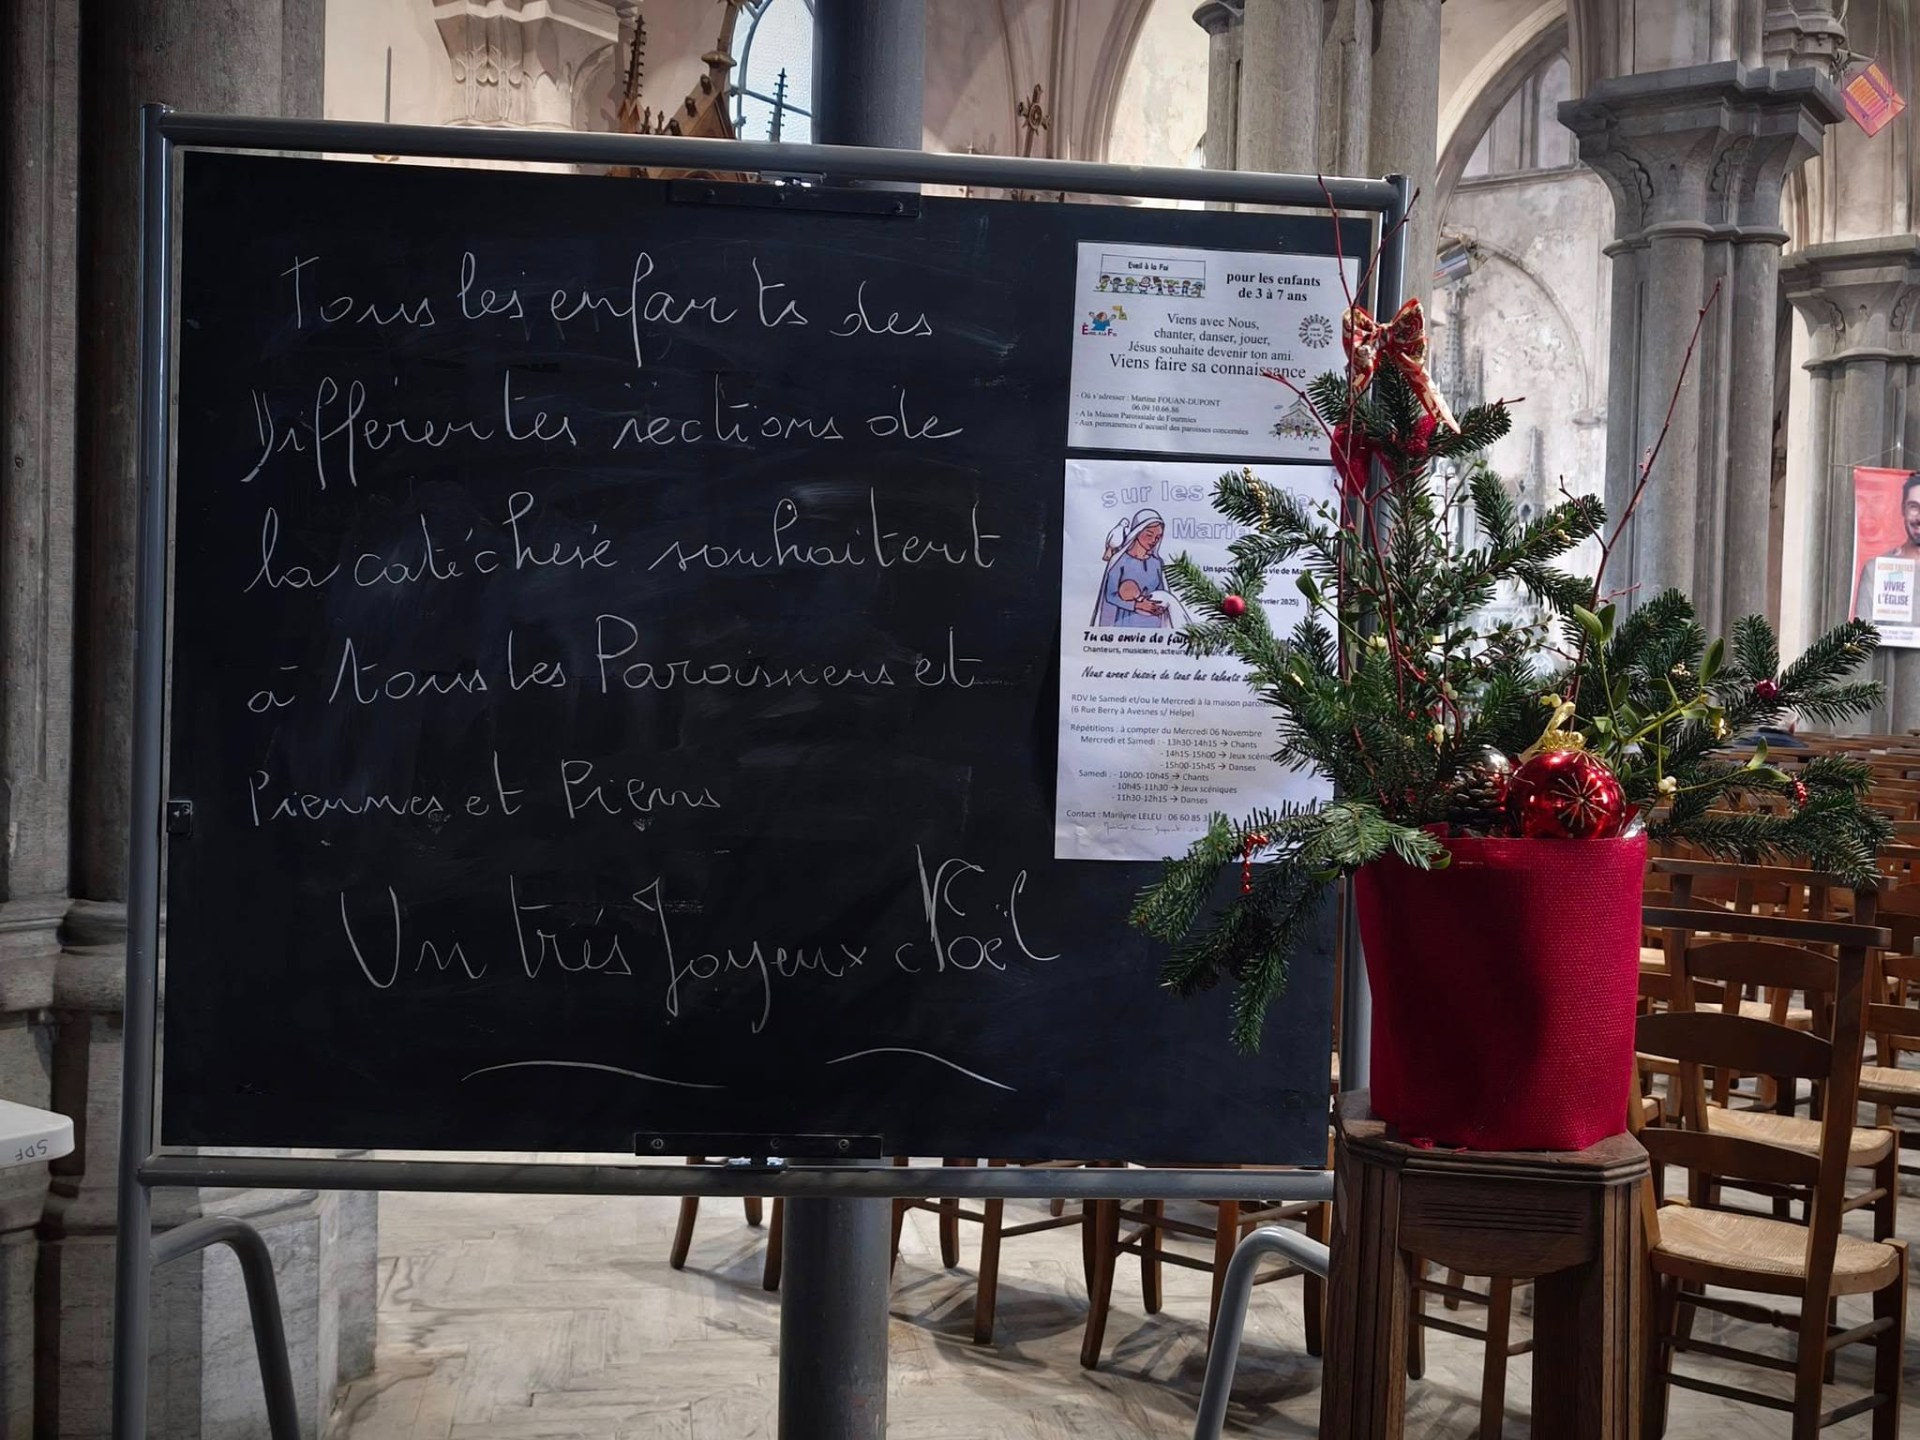 Tous les enfants des
Différentes sections de
la catéchèse souhaitent
à tous les Paroissiens et
Piennes et Piens
Un très Joyeux Noël
Eveil à la Foi
pour les enfants
de 3 à 7 ans
Viens avec Nous,
chanter, danser, jouer,
Jésus souhaite devenir ton ami.
Viens faire sa connaissance
- Où s'adresser : Martine FOUAN-DUPONT
06.09.10.66.86
- A la Maison Paroissiale de Fourmies
- Aux permanences d'accueil des paroisses concernées
sur les
Marie
Un
vie de
février 2025)
Tu as envie de
Chanteurs, musiciens,
Nous avons besoin de tous les talents
RDV le Samedi et/ou le Mercredi à la maison
(6 Rue Berry à Avesnes s/ Helpe)
Répétitions : à compter du Mercredi 06 Novembre
Mercredi et Samedi : - 13h30-14h15 → Chants
- 14h15-15h00 → Jeux
- 15h00-15h45 → Danses
Samedi : - 10h00-10h45 → Chants
- 10h45-11h30 → Jeux scéniques
- 11h30-12h15 → Danses
Contact : Marilyne LELEU : 06 60 85
VIVRE
L'ÉGLISE
SDF